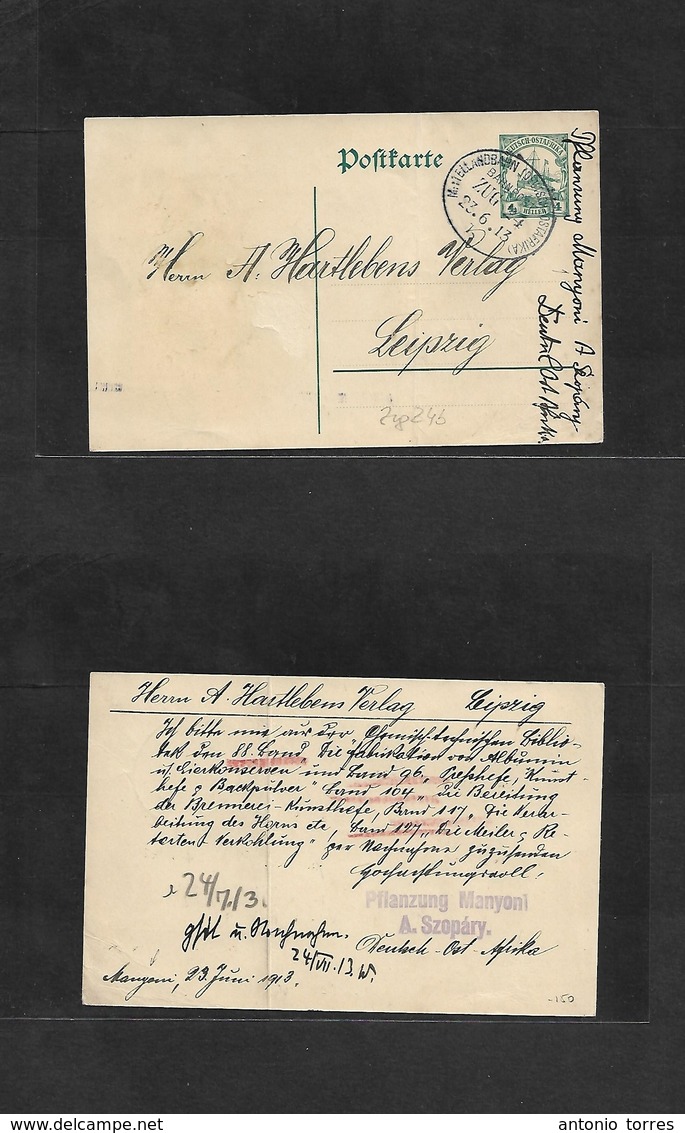 Postkarte
DEUTSCH-OSTAFRIKA
4 HELLER 4
MITTELLANDBAHN (DEUTSCH-OSTAFRIKA)
BAHNPOST
ZUG 4
27.6.13
Pflanzung Manyoni A Szopáry
Deutsch Ost Afrika
Herrn A. Hartlebens Verlag
Leipzig
Herrn A. Hartlebens Verlag Leipzig
Ich bitte mir aus der Chemisch-technischen Biblio-
tek den 88. Band „Die Fabrikation von Albumin
u. Eierkonserven" und Band 96 „Preßhefe, Kunst-
hefe & Backpulver" Band 104 „Die Bereitung
der Brennerei-Kunsthefe, Band 117 „Die Verar-
beitung des Horns etc, Band 127 „Die Meiler & Re-
torten Verkohlung" per Nachnahme zuzusenden
Hochachtungsvoll!
24/7.13.
Pflanzung Manyoni
A. Szopáry.
u. Nachnahm.
Deutsch-Ost-Afrika
24/VII.13.W.
Manyoni, 23. Juni 1913.
-150
antonio torres